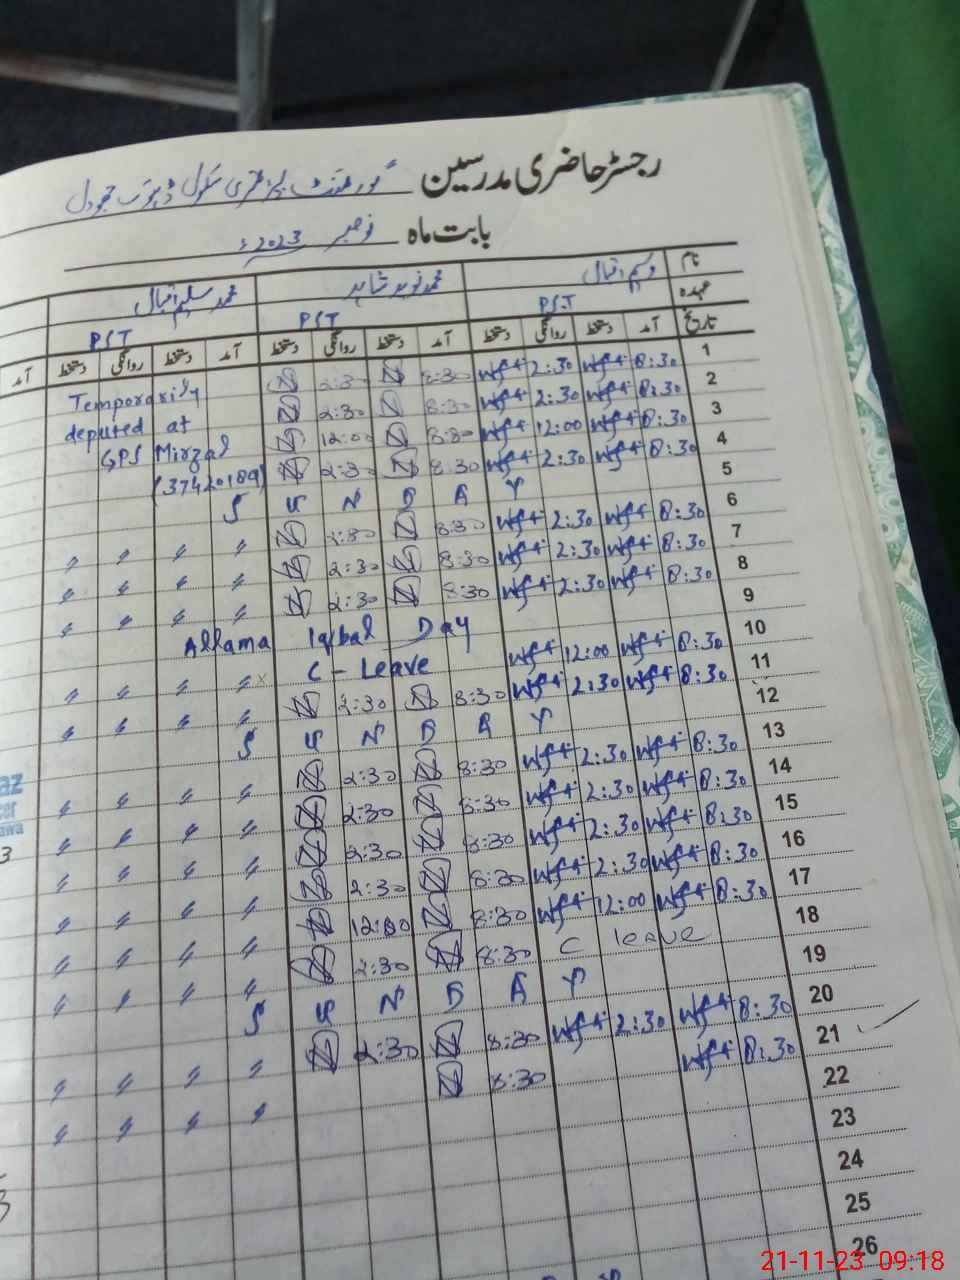 رجسٹر حاضری مدرسین گورنمنٹ پرائمری سکول
بابت ماہ نومبر 2023ء
نام وسیم اقبال محمد نوید شاہد محمد سلیم اقبال
عہدہ PST PST PST
تاریخ آمد دستخط روانگی دستخط آمد دستخط روانگی دستخط آمد دستخط روانگی دستخط آمد
1 8:30 2:30 8:30 2:30
Temporarily
2 8:30 2:30 8:30 2:30
deputed at
3 8:30 12:00 8:30 12:00
GPS Mirzal
4 8:30 2:30 8:30 2:30
(37420189)
5 S U N D A Y
6 8:30 2:30 8:30 2:30 " " " "
7 8:30 2:30 8:30 2:30 " " " "
8 8:30 2:30 8:30 2:30 " " " "
9 Allama Iqbal Day
10 8:30 12:00 C - Leave " " " "
11 8:30 2:30 8:30 2:30 " " " "
12 S U N D A Y
13 8:30 2:30 8:30 2:30 " " " "
14 8:30 2:30 8:30 2:30 " " " "
15 8:30 2:30 8:30 2:30 " " " "
16 8:30 2:30 8:30 2:30 " " " "
17 8:30 12:00 8:30 12:00 " " " "
18 C leave 8:30 2:30 " " " "
19 S U N D A Y
20 8:30 2:30 8:30 2:30 " " " "
21 8:30 8:30 " " " "
22
23
24
25
26
21-11-23 09:18